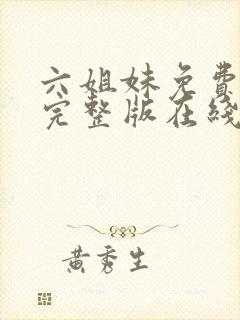 六姐妹免費
完整版在綫
黃秀生